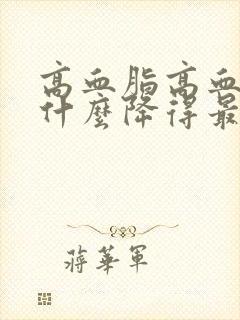 高血脂高血
什麼降得最
蔣華軍